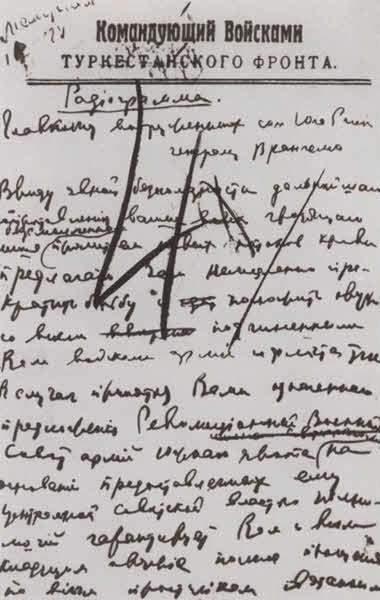 Командующий Войсками
ТУРКЕСТАНСКОГО ФРОНТА.
Радіограмма.
Главкому вооруженных сил Юга России
генералу Врангелю
Ввиду явной бесполезности дальнейшаго
сопротивления ваших войск грозящаго
лишь потоков крови
предлагаю Вам немедленно пре-
кратить борьбу и положить оружие
со всеми подчиненными
Вам войсками армии и флота
В случае принятия Вами означеннаго
предложения Революционный Военный
Совет армий южнаго фронта на
основании предоставленных ему
центральной Советской властью полно-
мочій гарантирует Вам и всем
кладущим оружие полное прощение
по всем проступкам связанным